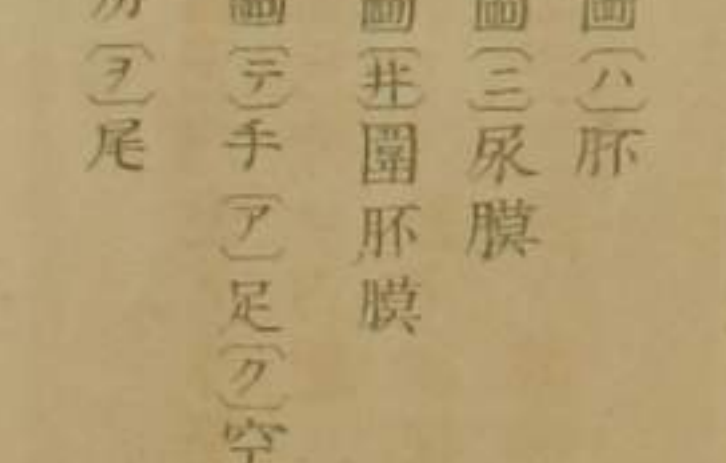 圖(ハ)胚
圖(ニ)尿膜
圖(井)圍胚膜
圖(テ)手(ア)足(ク)空
(ヲ)尾